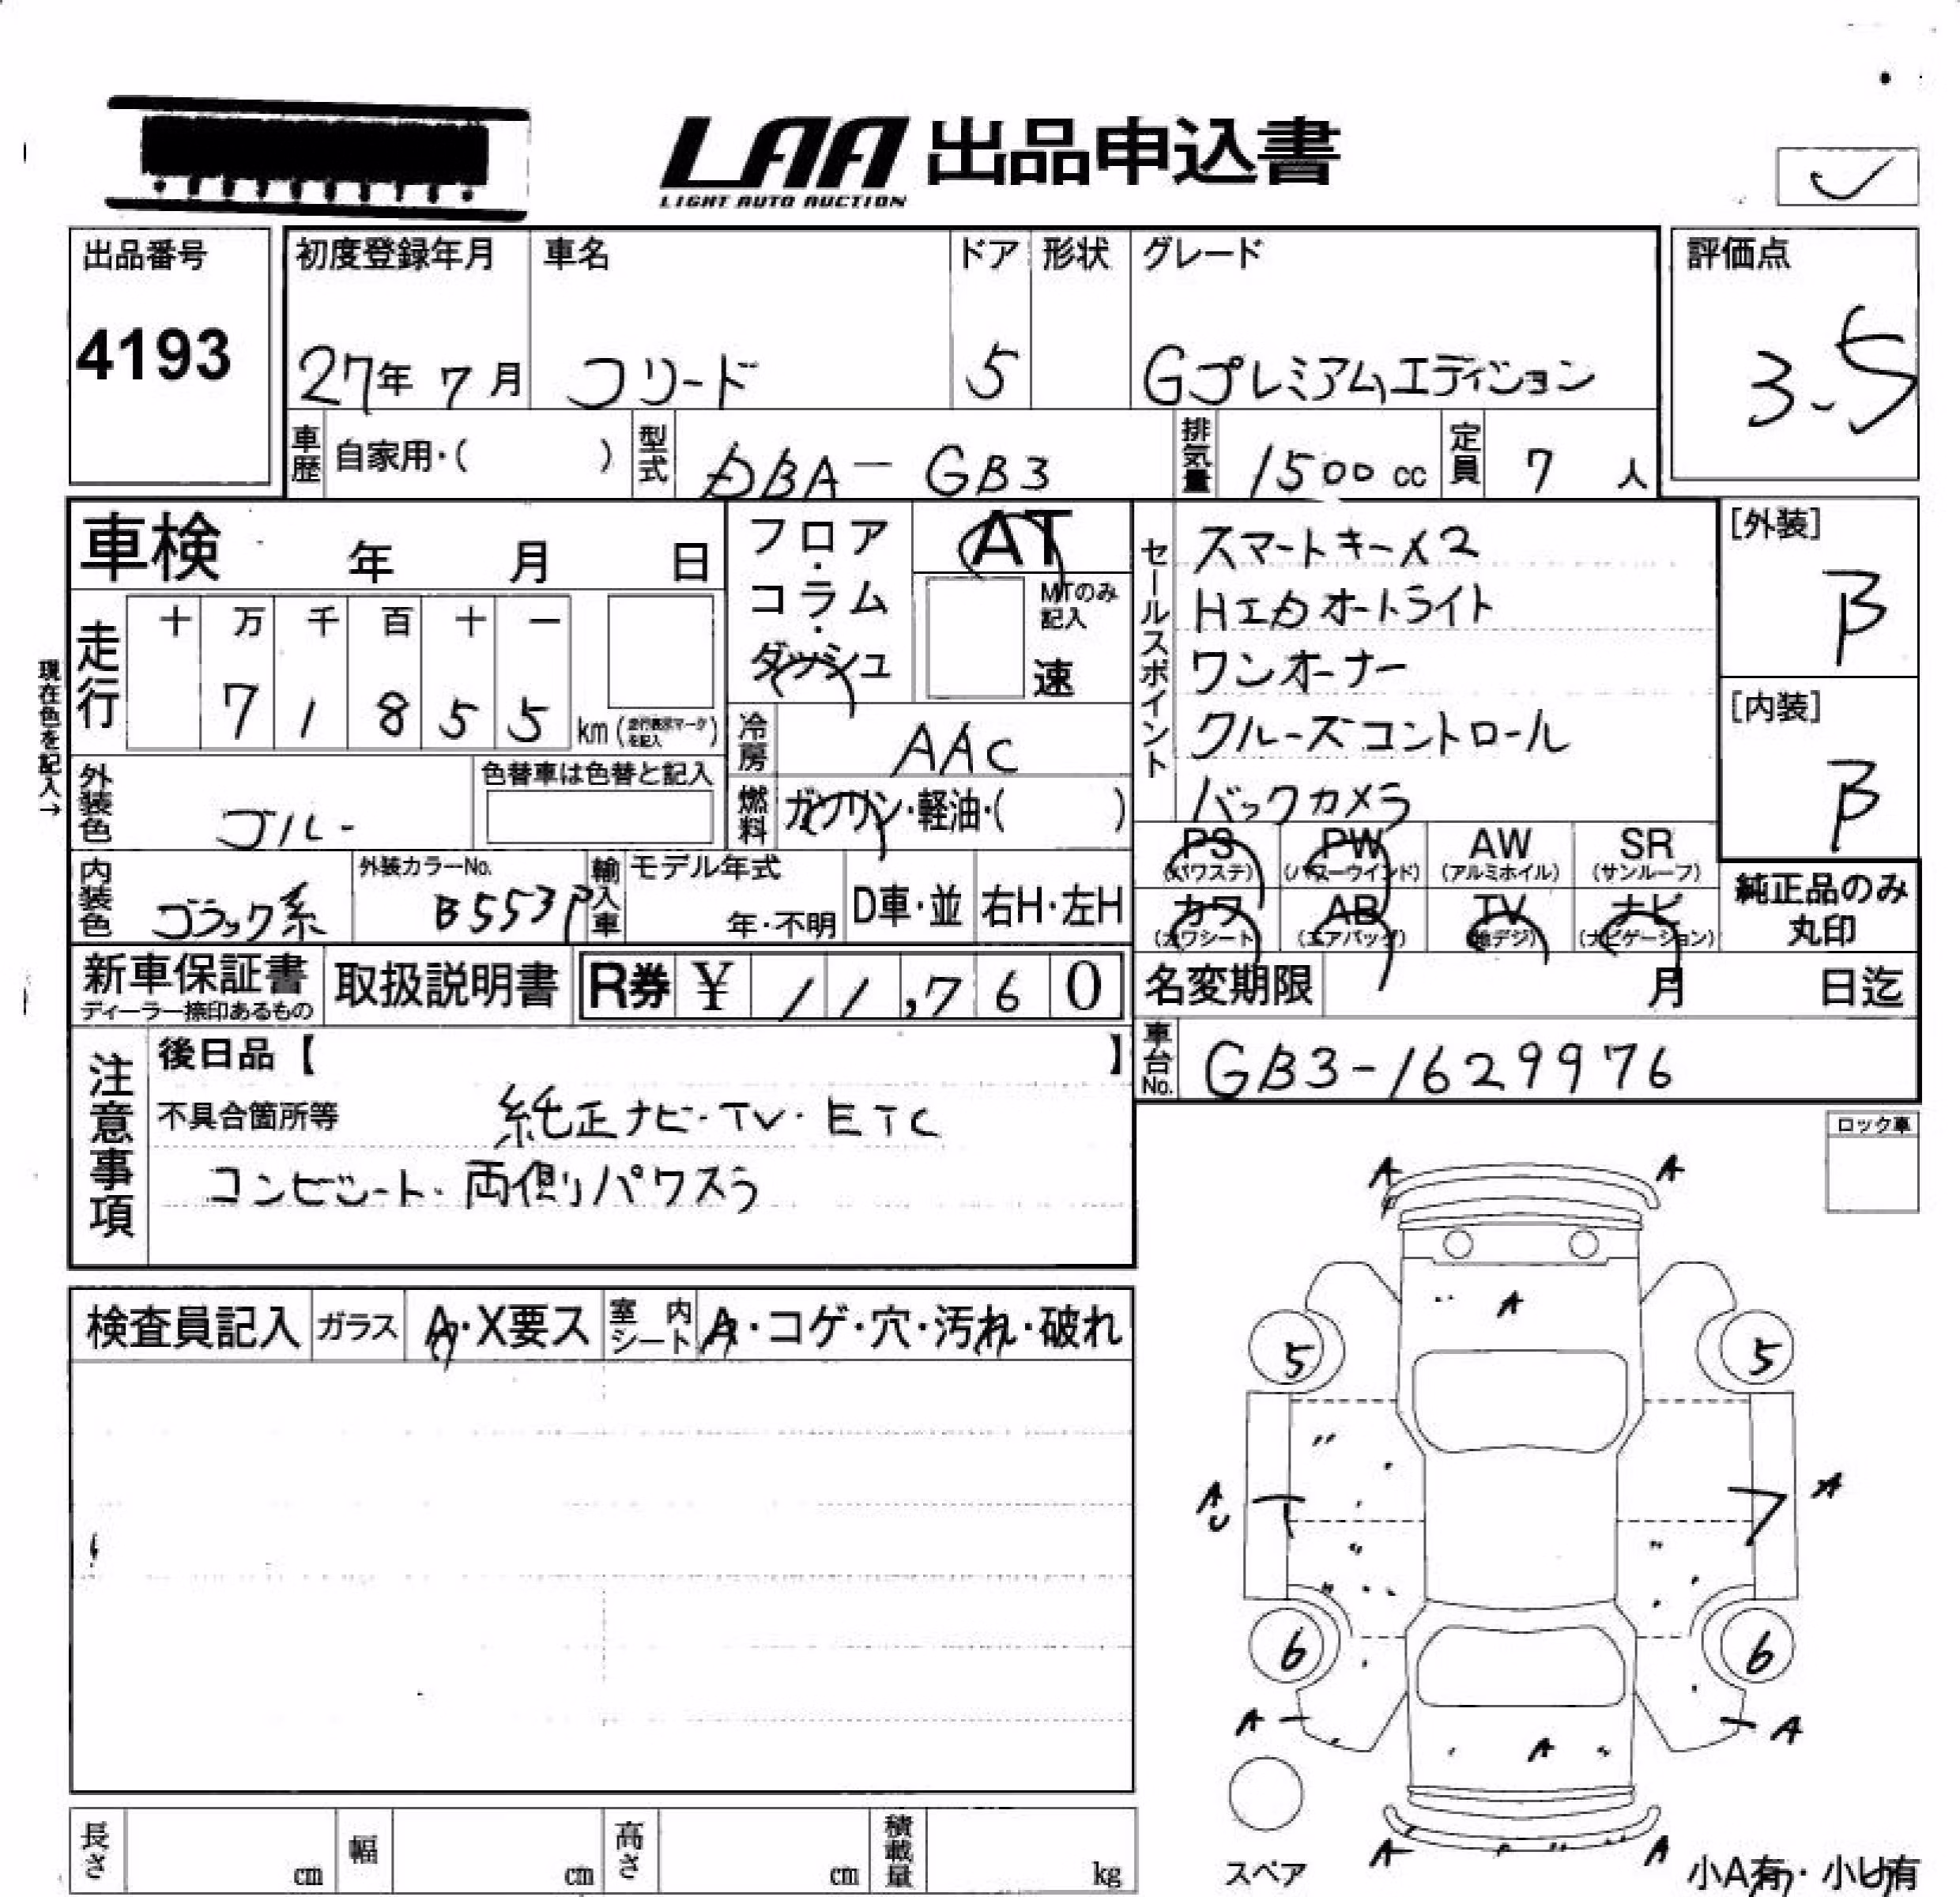 LAA 出品申込書
LIGHT AUTO AUCTION
出品番号 初度登録年月 車名 ドア 形状 グレード 評価点
4193 27年 7月 フリード 5 Gプレミアムエディション 3.5
車歴 自家用・( ) 型式 DBA-GB3 排気量 1500cc 定員 7人
車検 年 月 日
フロア・コラム・ダッシュ
AT
MTのみ記入
速
走行
十 万 千 百 十 一
7 1 8 5 5 km (走行表示マークを記入)
現在色を記入→
冷房 AAC
外装色 ブルー
色替車は色替と記入
燃料 ガソリン・軽油・( )
内装色 ブラック系
外装カラーNo. B553P
輸入車 モデル年式 年・不明 D車・並 右H・左H
セールスポイント
スマートキー×2
HIDオートライト
ワンオーナー
クルーズコントロール
バックカメラ
[外装]
B
[内装]
B
PS PW AW SR
(パワステ) (パワーウインド) (アルミホイル) (サンルーフ)
カワ AB TV ナビ
(カワシート) (エアバッグ) (地デジ) (ナビゲーション)
純正品のみ
丸印
新車保証書 取扱説明書 R券 ¥ 11,760
ディーラー捺印あるもの
名変期限 月 日迄
車台No. GB3-1629976
注意事項
後日品【 】
不具合箇所等 純正ナビ・TV・ETC
コンビシート・両側パワスラ
ロック車
検査員記入 ガラス A・X要ス 室内シート A・コゲ・穴・汚れ・破れ
A A
A
5 5
A U A
6 6
A A
A
A A
スペア
小A有・小U有
長さ cm 幅 cm 高さ cm 積載量 kg